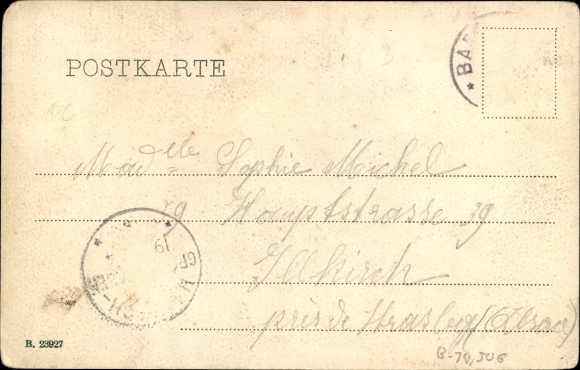 POSTKARTE
* BA
Madelle Sophie Michel
19. Hauptstrasse 39
Illkirch
près de Strasbg (Alsace)
19
B. 23927
B-70,506